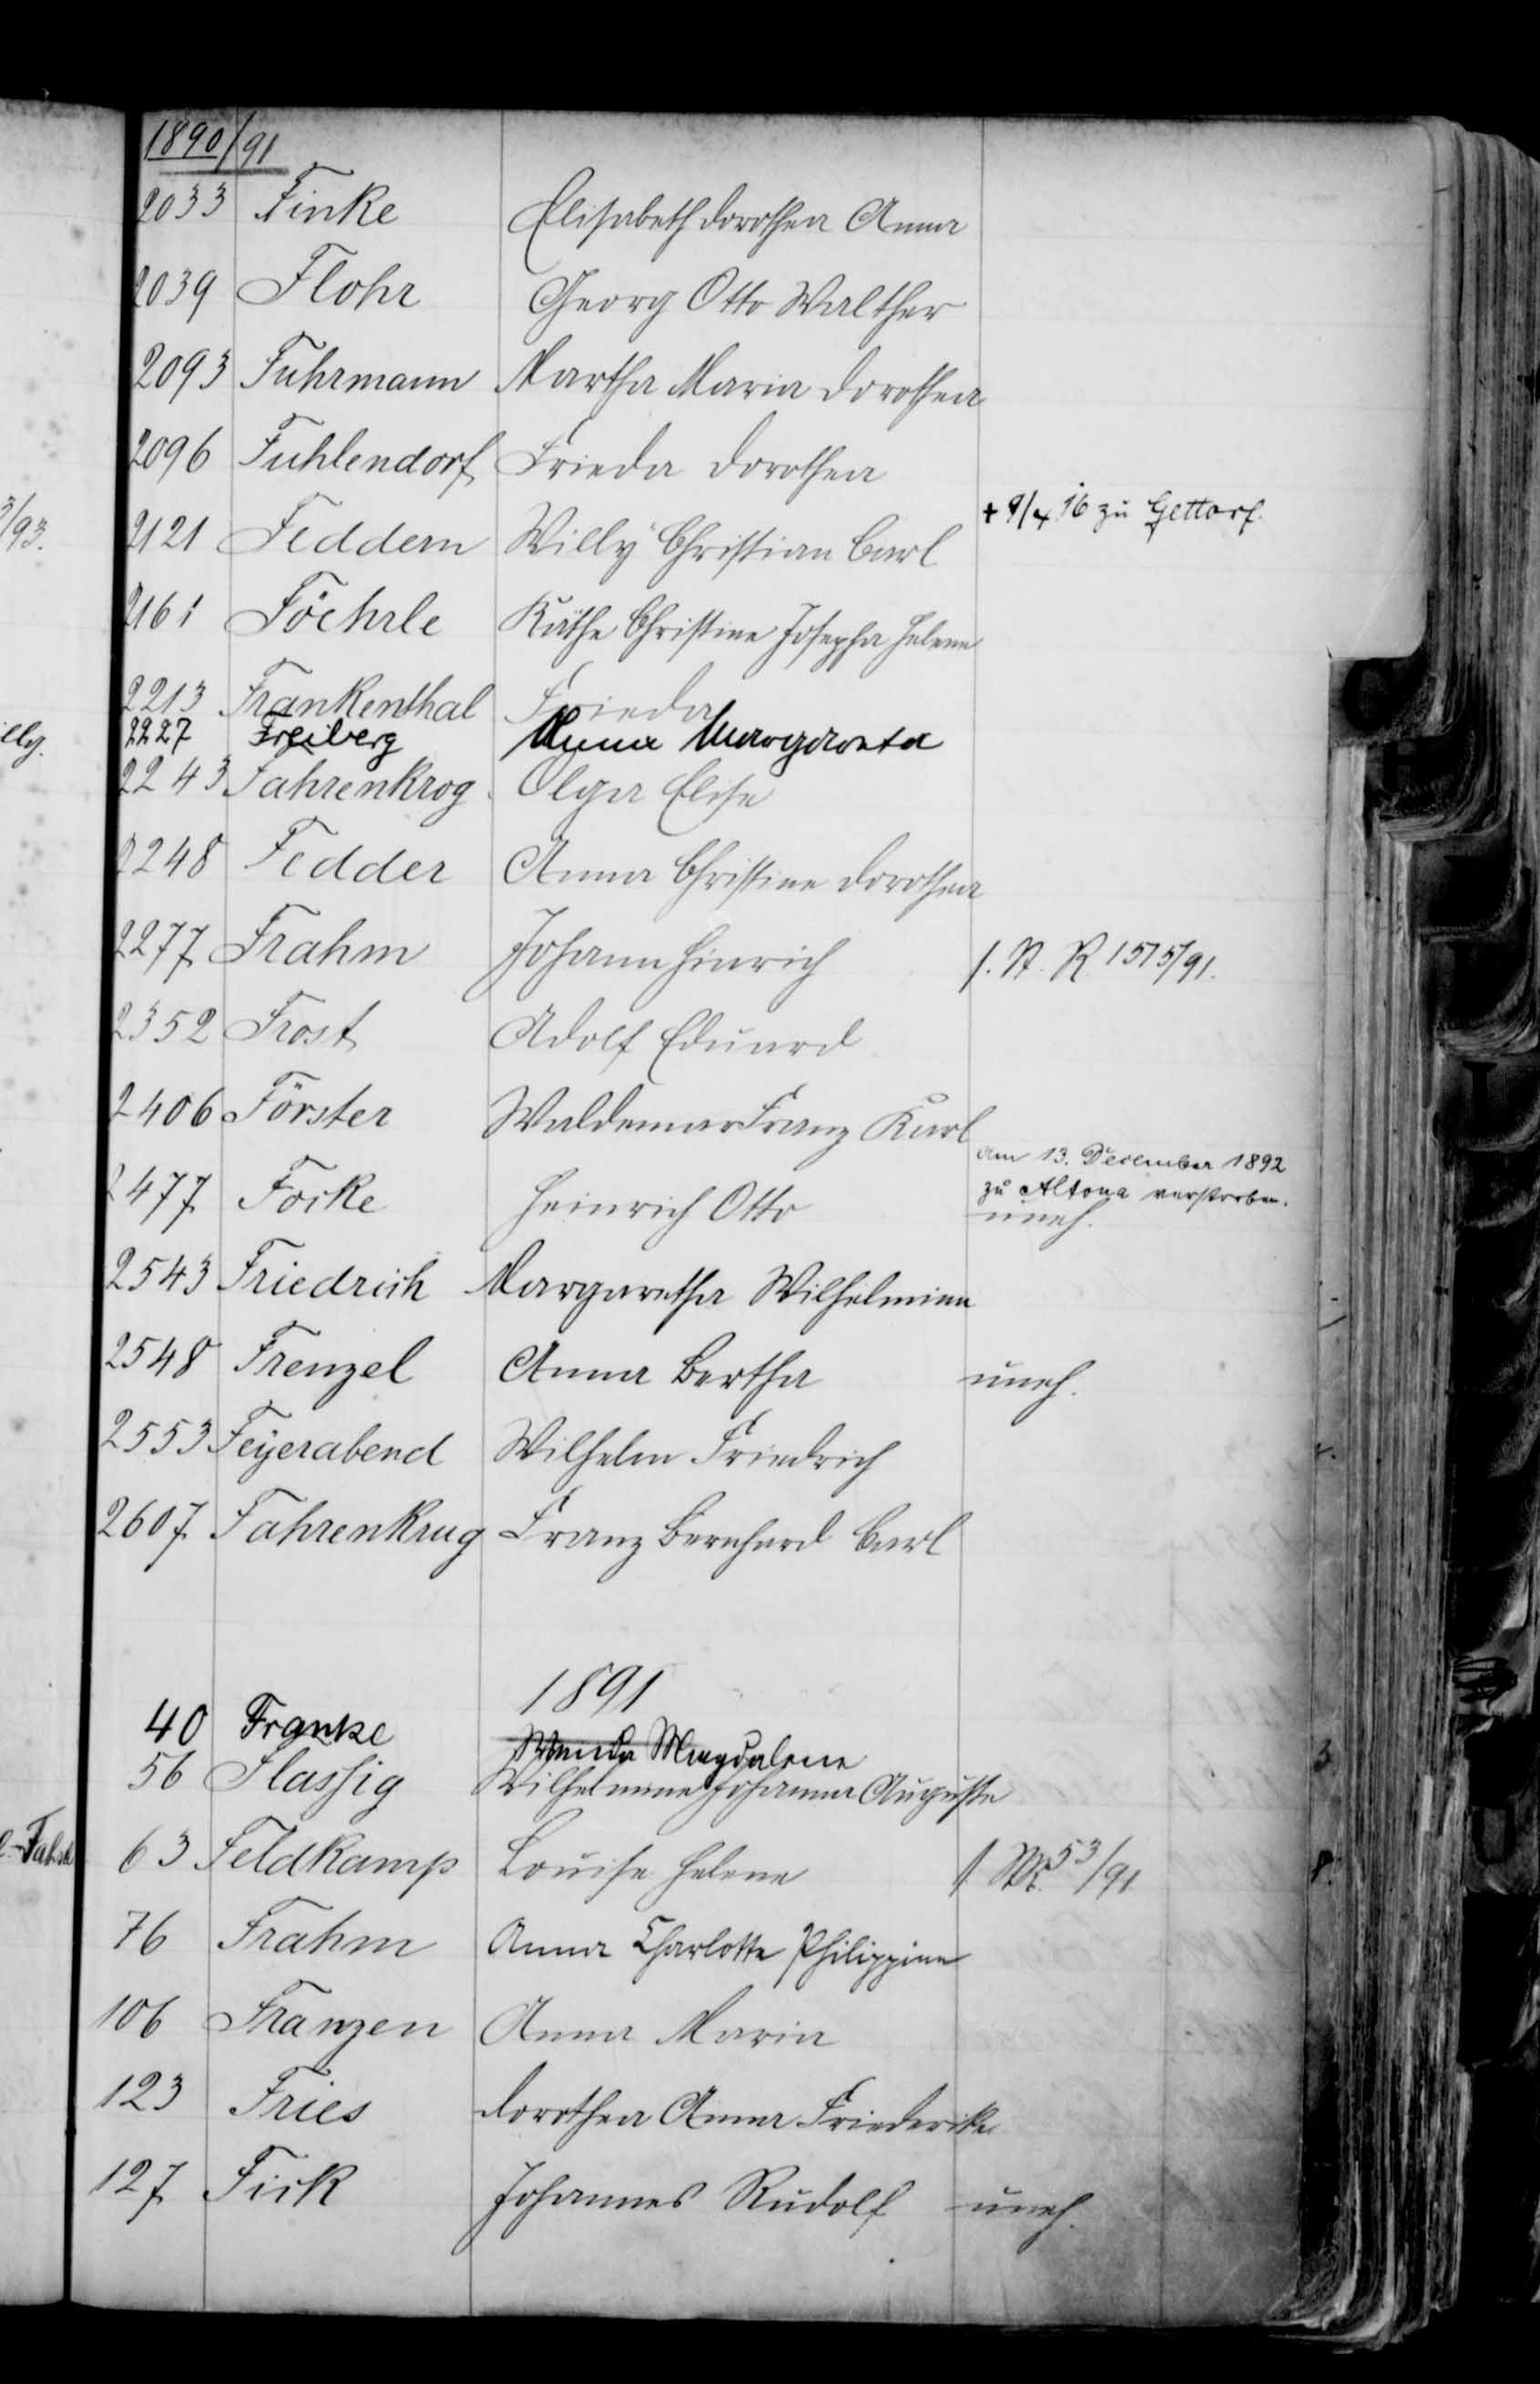 1890/91
2033 Finke Elisabeth Dorothea Anna
2039 Flohr Georg Otto Walther
2093 Fuhrmann Martha Maria Dorothea
2096 Fuhlendorf Frieda Dorothea
+ 9/4 16 zu Gettorf.
3/93. 2121 Feddern Willy Christian Carl
2161 Föehrle Käthe Christine Josepha Helene
2213 Frankenthal Frieda
2227 Freiberg Anna Margareta
2243 Fahrenkrog Olga Elise
2248 Fedder Anna Christine Dorothea
2277 Frahm Johann Hinrich f. St. R 1515/91.
2352 Frost Adolf Eduard
2406 Förster Waldemar Franz Karl
am 13. December 1892
zu Altona verstorben.
2477 Focke Heinrich Otto uneh.
2543 Friedrich Margaretha Wilhelmine
2548 Frenzel Anna Bertha uneh.
2553 Feyerabend Wilhelm Friedrich
2607 Fahrenkrug Franz Bernhard Carl
1891
40 Franke Wanda Magdalene
56 Flassig Wilhelmine Johanna Auguste
63 Feldkamp Louise Helene 53/91
76 Frahm Anna Charlotte Philippine
106 Franzen Anna Maria
123 Fries Dorothea Anna Friederike
127 Fick Johannes Rudolf uneh.